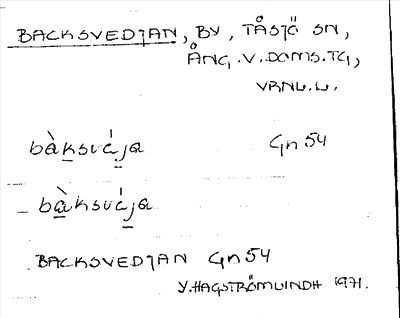 BACKSVEDJAN, BY, TÅSJÖ SN,
ÅNG.V.DOMS.TG,
VRNL.L.
bàksvája Gn 54
bàksvája
BACKSVEDJAN Gn 54
Y.HAGSTRÖMLINDH 1971.